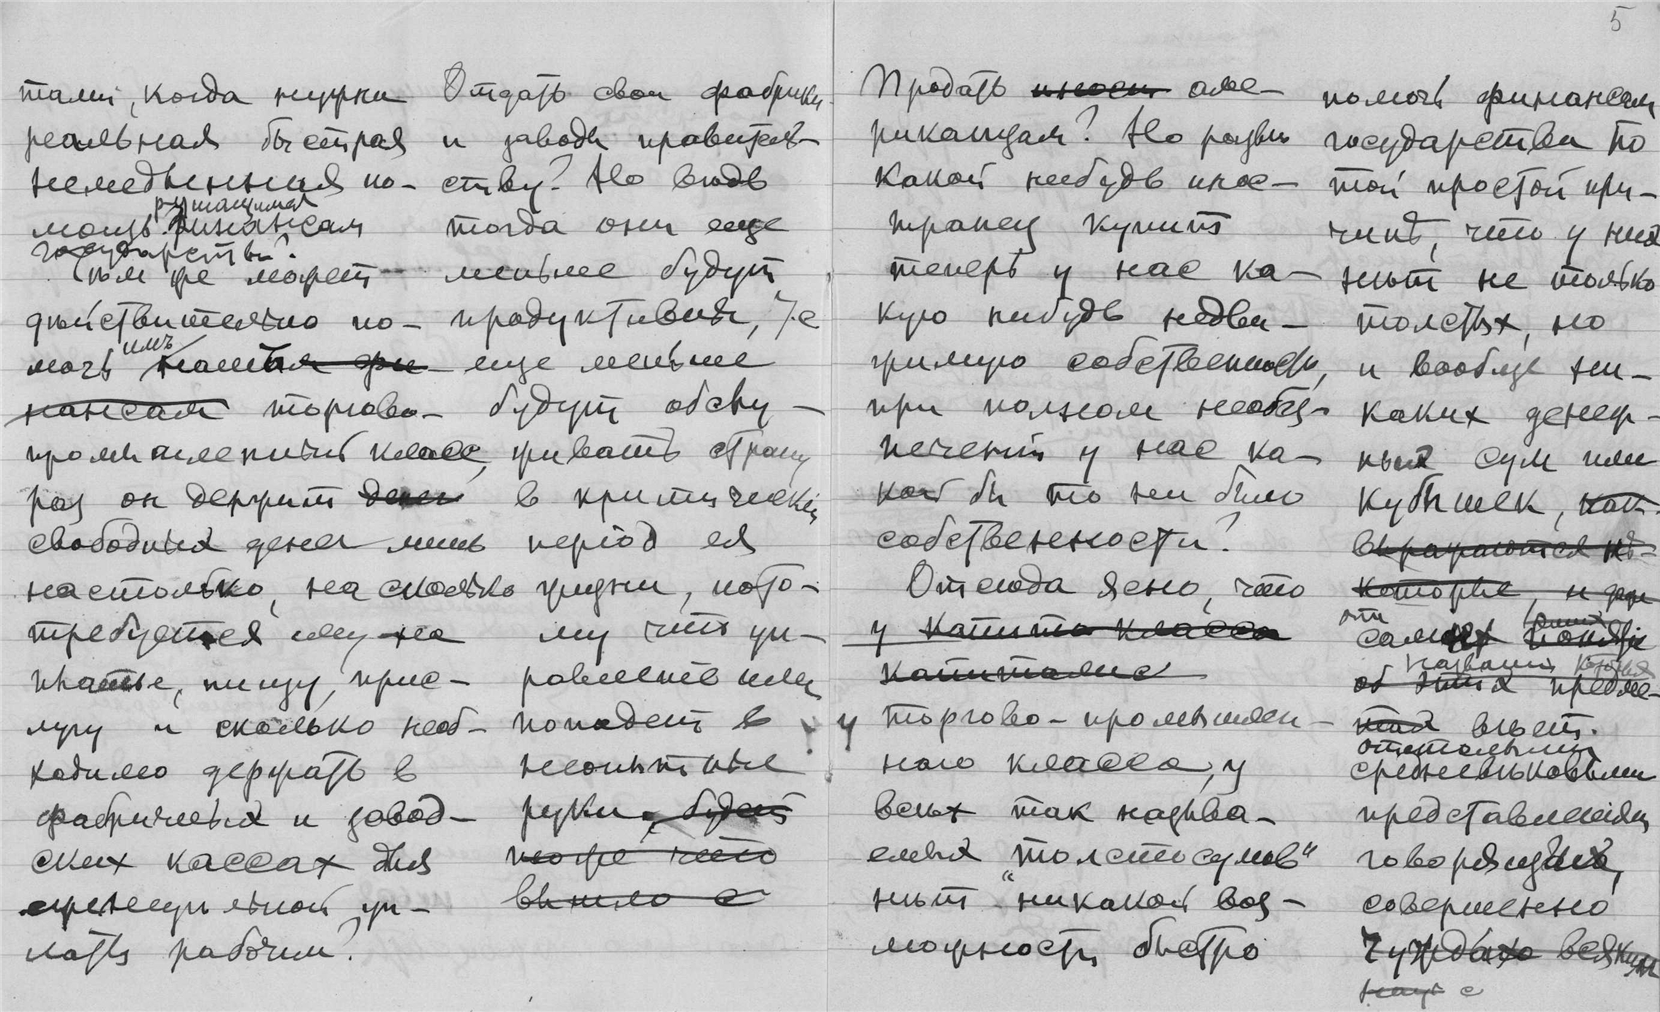 5
тами, когда нужна
реальная быстрая
немедленная по-
мощь рушащимся финансам
государства?
Чем же может
действительно по-
мочь имъ нашим фи-
нансам торгово-
промышленный класс,
раз он держит денег
свободных денег лишь
настолько, на сколько
требуется ему на
платье, пищу, прис-
лугу и сколько необ-
ходимо держать в
фабричных и завод-
ских кассах для
еженедельной уп-
латы рабочим?
Отдать свои фабрики
и заводы правитель-
ству? Но ведь
тогда они еще
меньше будут
продуктивны, т.е
еще меньше
будут обслу-
живать страну
в критический
період ея
жизни, пото-
му что уп-
равление ими
попадет в
неопытные
руки, будет
тоже что
вышло с
Продать иност аме-
риканцам? Но разве
какой нибудь инос-
транец купит
теперь у нас ка-
кую нибудь недви-
жимую собственность,
при полном необез-
печеніи у нас ка-
кой бы то ни было
собственности?
Отсюда ясно, что
у капита класса
капиталис
у торгово-промышлен-
ного класса, у
всех так называ-
емых "толстосумов"
нет "никакой воз-
можности быстро
помочь финансам
государства по
той простой при-
чине, что у них
нет не только
толстых, но
и вообще ни-
каких денеж-
ных сум или
кубышек, как
выражаются не-
которые, и
сам
об этих предме-
тах веет
отсталыми
средневековыми
представлениям
говорящий,
совершенно
чуждых всяким
с